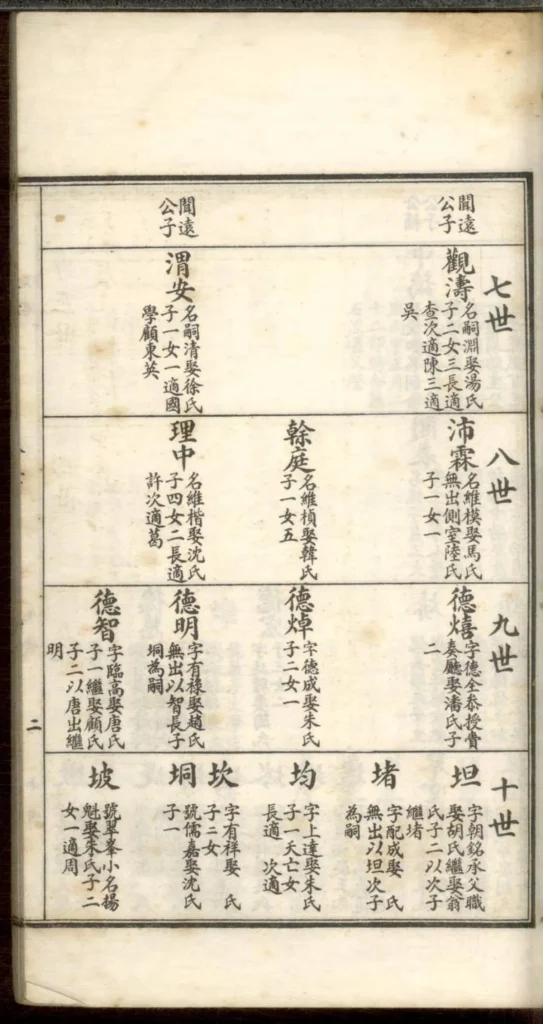 聞遠
公子
聞遠
公子
七世
觀濤
名嗣淵娶湯氏
子二女三長適
查次適陳三適
吳
渭安
名嗣清娶徐氏
子一女一適國
學顧東英
八世
沛霖
名維模娶馬氏
無出側室陸氏
子一女一
榦庭
名維楨娶韓氏
子一女五
理中
名維楷娶沈氏
子四女二長適
許次適葛
九世
德熺
字德全叅授費
奏廳娶潘氏子
二
德焯
字德成娶朱氏
子二女一
德明
字有祿娶趙氏
無出以智長子
垌為嗣
德智
字臨高娶唐氏
子一繼娶顧氏
子二以唐出繼
明
十世
坦
字朝銘承父職
娶胡氏繼娶翁
氏子二以次子
繼堵
堵
字配成娶 氏
無出以坦次子
為嗣
均
字上達娶朱氏
子一夭亡女
長適 次適
坎
字有祥娶 氏
子二女
垌
號儒嘉娶沈氏
子一
坡
號翠峯小名揚
魁娶朱氏子二
女一適周
二